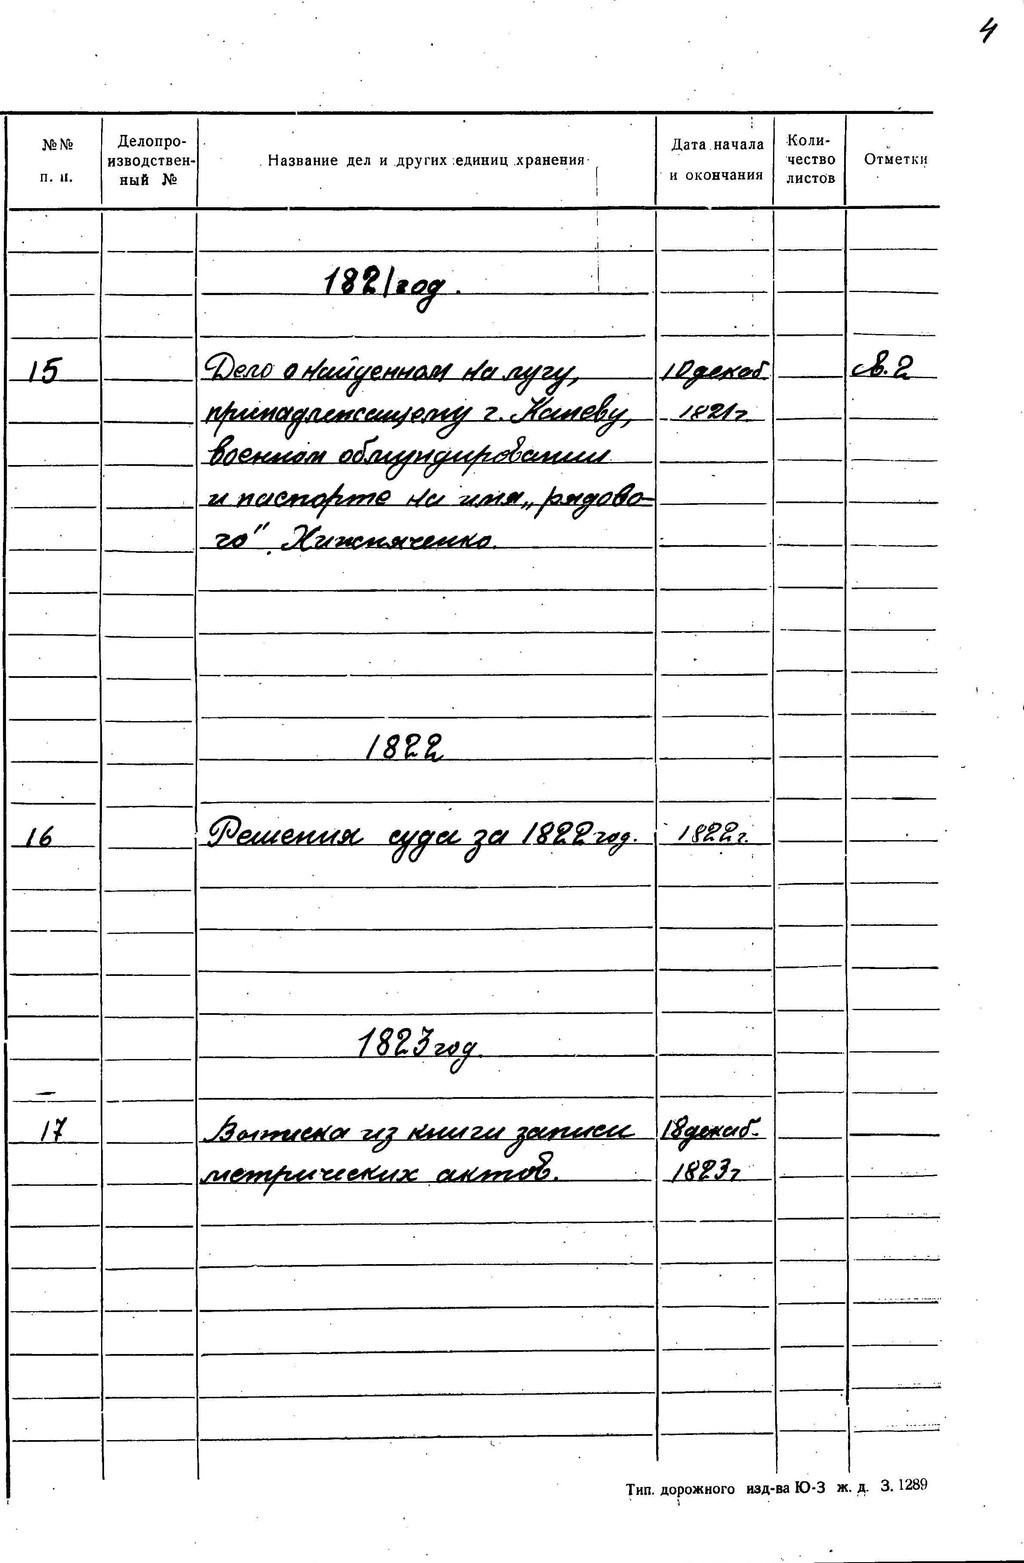 4
№№ п. п.
Делопро-
изводствен-
ный №
Название дел и других единиц хранения
Дата начала
и окончания
Коли-
чество
листов
Отметки
1821 год.
15 Дело о найденном на лугу, 10 декаб.
принадлежащему г. Каневу, 1821 г.
военном обмундировании
и паспорте на имя „рядово-
го" Нижняченко.
1822
16 Решения суда за 1822 год. 1822 г.
1823 год
17 Выписка из книги записи 18 декаб.
метрических актов. 1823 г
Тип. дорожного изд-ва Ю-З ж. д. З. 1289